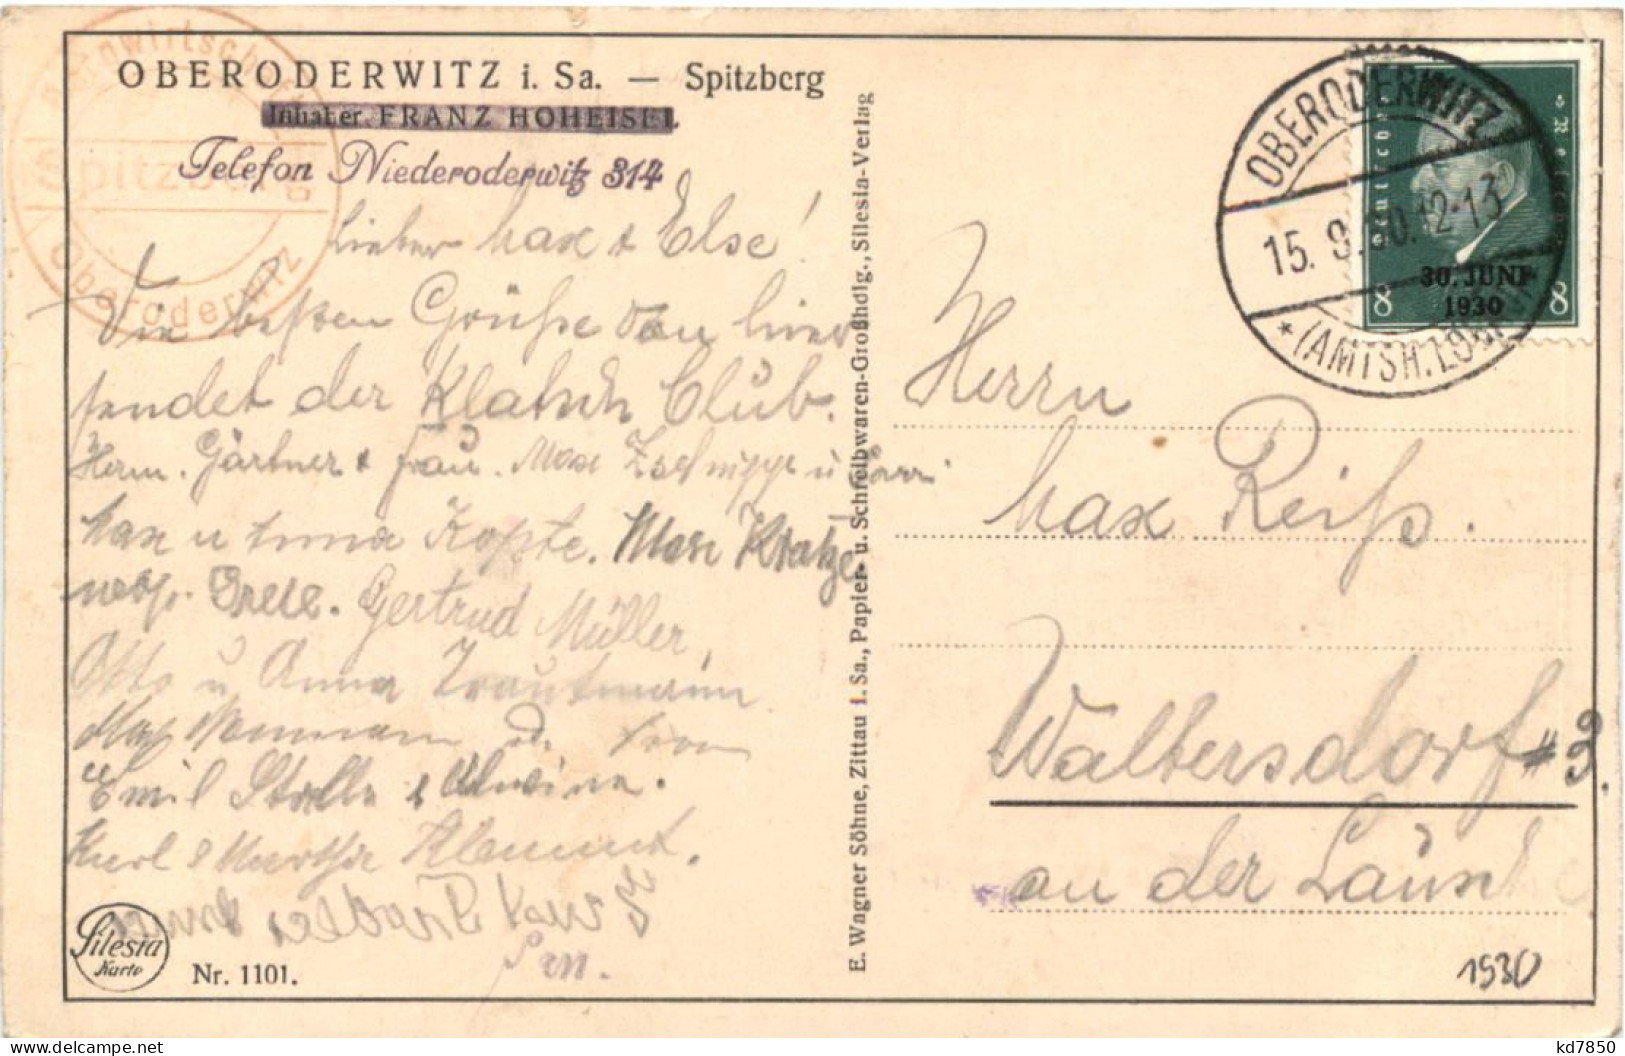 OBERODERWITZ i. Sa. — Spitzberg
Inhaber FRANZ HOHEISEL
Telefon Niederoderwitz 314
Spitzberg
Oberoderwitz
Lieber Max & Else!
Die besten Grüße von hier
sendet der Klatsch Club.
Herm. Gärtner & Frau. Max
Max u
Kopte. Max
Grete. Gertrud Müller,
Otto u Anna Trautmann
Max
Emil
Karl & Martha Klemmt.
Silesia
Karte
Nr. 1101.
E. Wagner Söhne, Zittau i. Sa., Papier- u. Schreibwaren-Großhdlg., Silesia-Verlag
OBERODERWITZ
15. 9. 30. 12-13
* (AMTSH. LÖBAU)
Deutsches Reich
30. JUNI
1930
8 8
Herrn
Max Reiß.
Waltersdorf #3.
an der Lausche
1930
kd7850